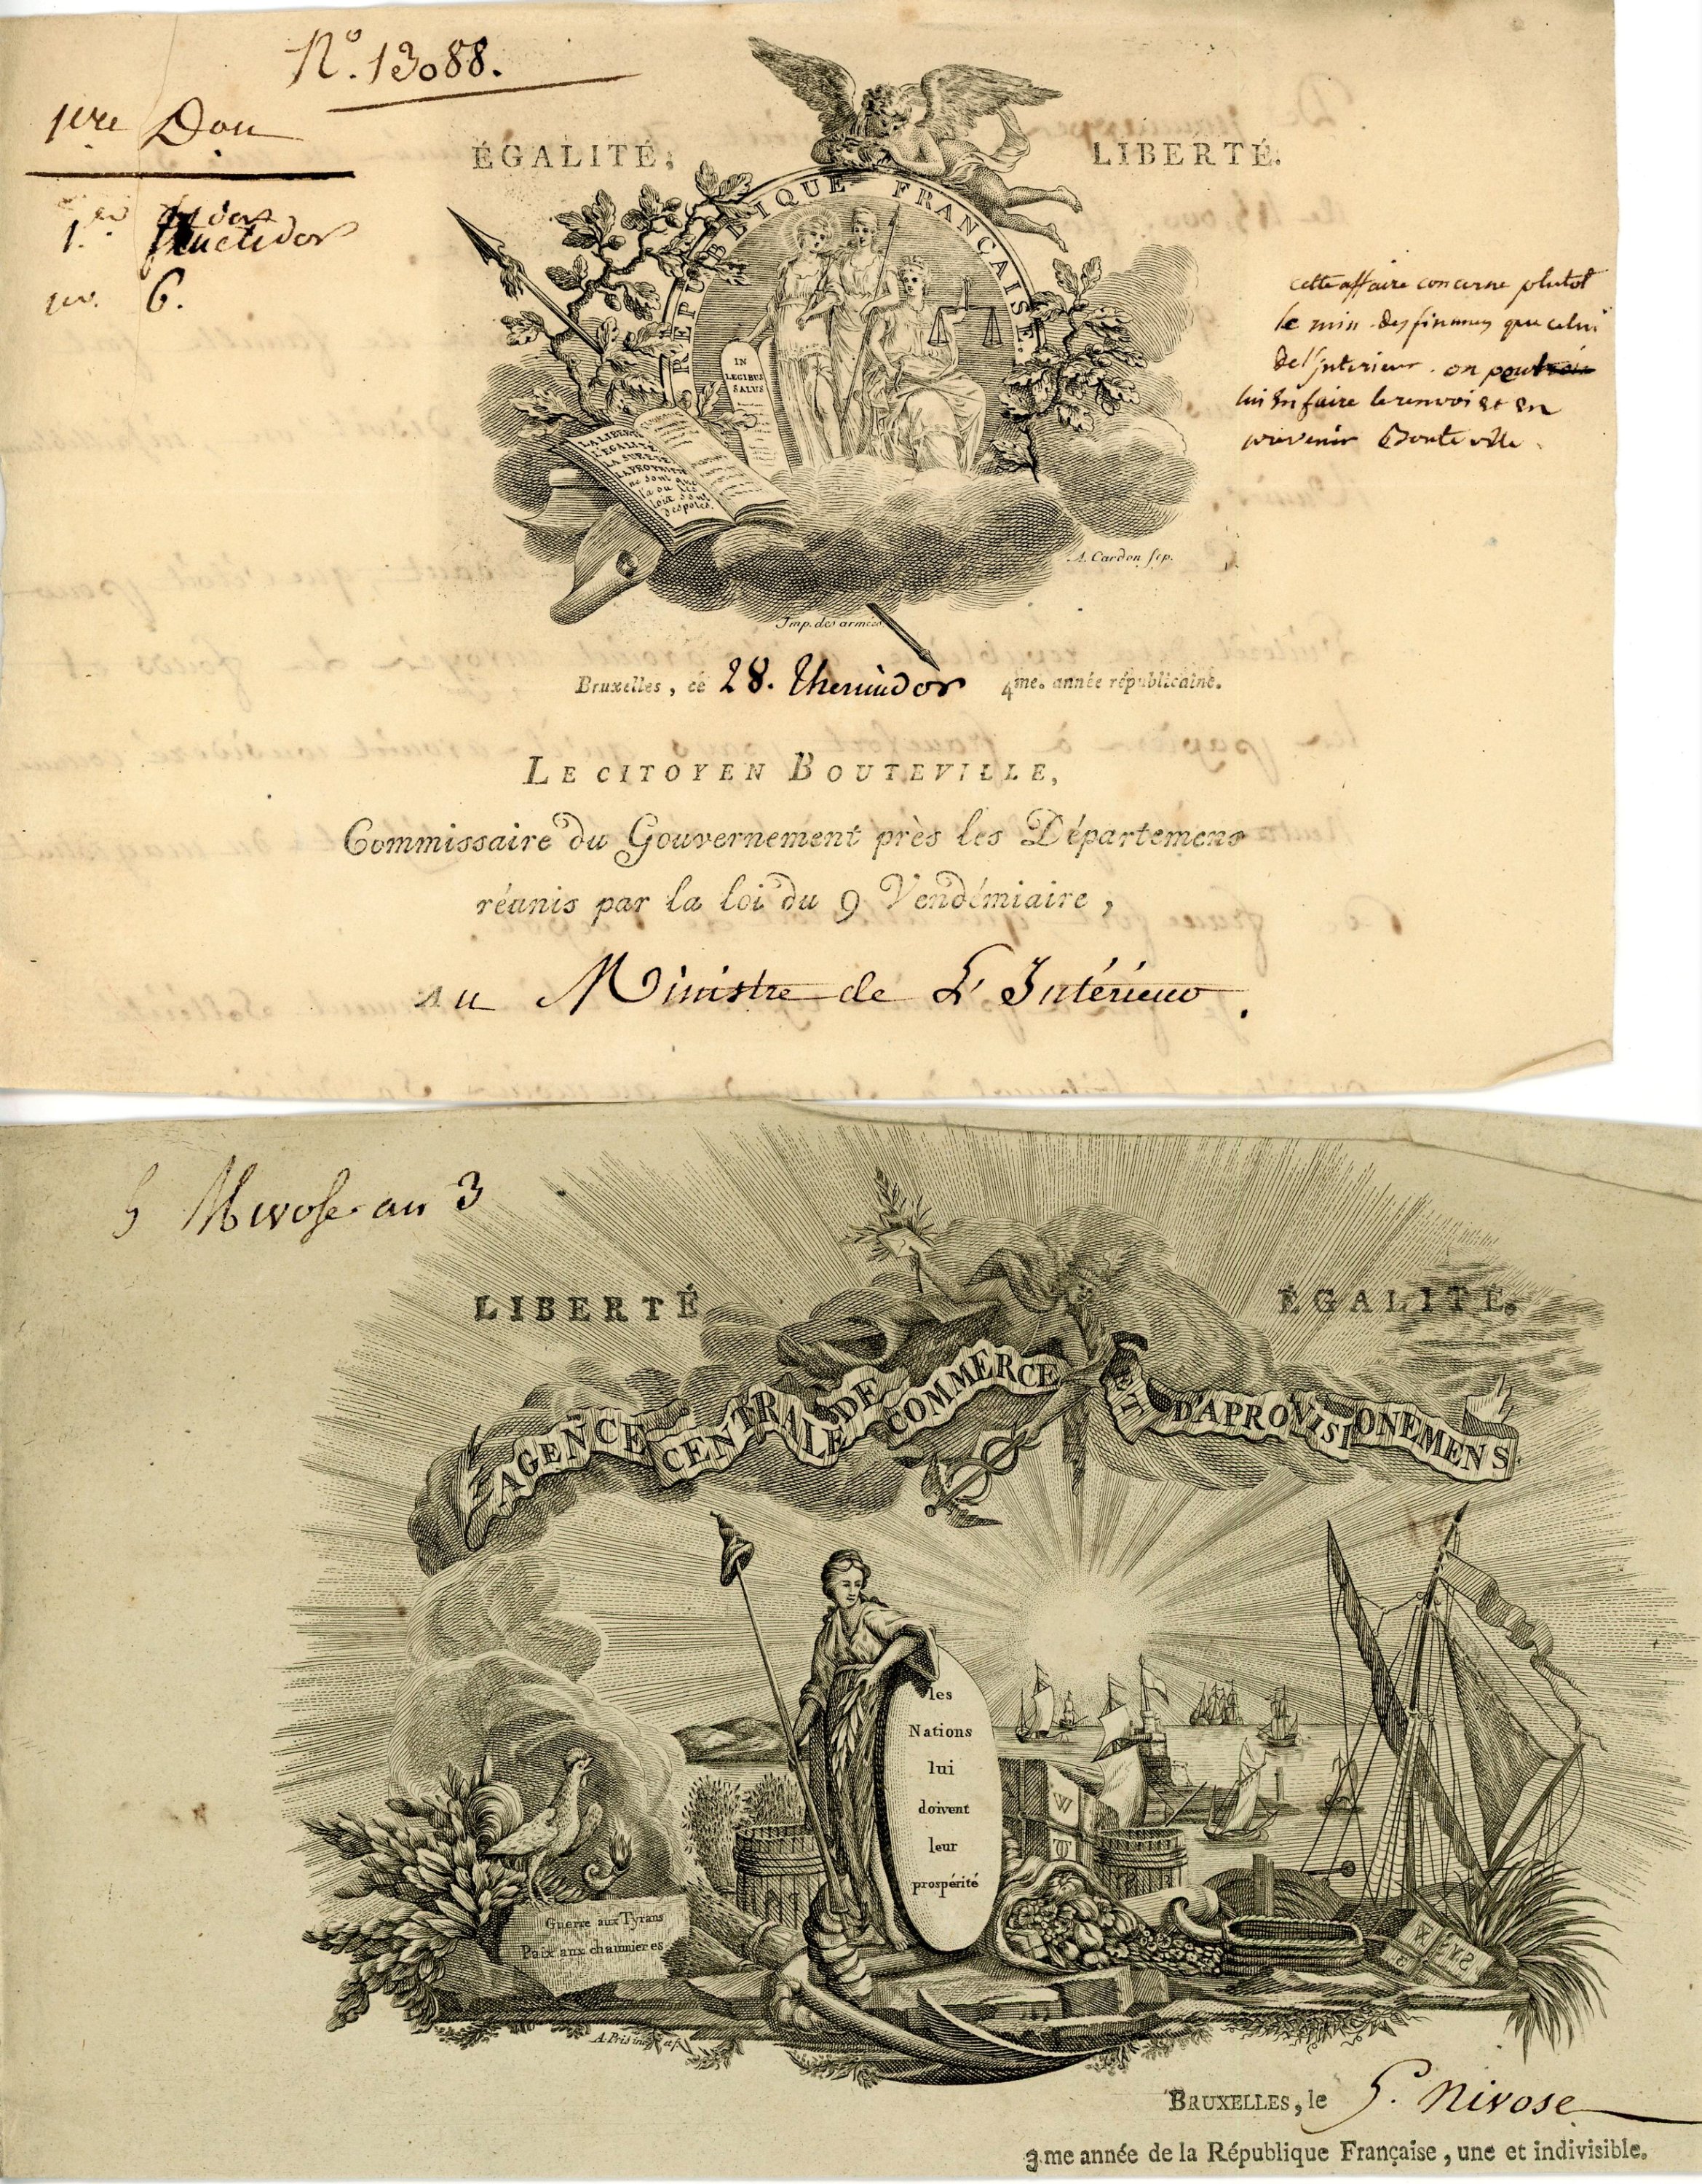 N.º 13088.
1ere Don
ÉGALITÉ,
LIBERTÉ.
RÉPUBLIQUE FRANÇAISE.
1.er
fructidor
6.
cette affaire concerne plutot
le min. des finances que celui
de l'interieur. on peut
lui en faire le renvoi et en
prevenir Bouteville.
IN
LEGIBUS
SALUS
LA LIBERTÉ
L'EGALITÉ
LA SURETÉ
LA PROPRIÉTÉ
ne sont que
là ou les
loix sont
despotes.
A. Cardon fcp.
Imp. des armées.
Bruxelles, ce 28. Thermidor 4me. année républicaine.
LE CITOYEN BOUTEVILLE,
Commissaire du Gouvernement près les Départemens
réunis par la loi du 9 Vendémiaire,
au Ministre de L'Intérieur.
5 Nivose an 3
LIBERTÉ
ÉGALITÉ.
AGENCE CENTRALE DE COMMERCE ET D'APROVISIONEMENS
les
Nations
lui
doivent
leur
prospérité
Guerre aux Tyrans
Paix aux chaumieres
BRUXELLES, le 5. Nivose
3me année de la République Française, une et indivisible.